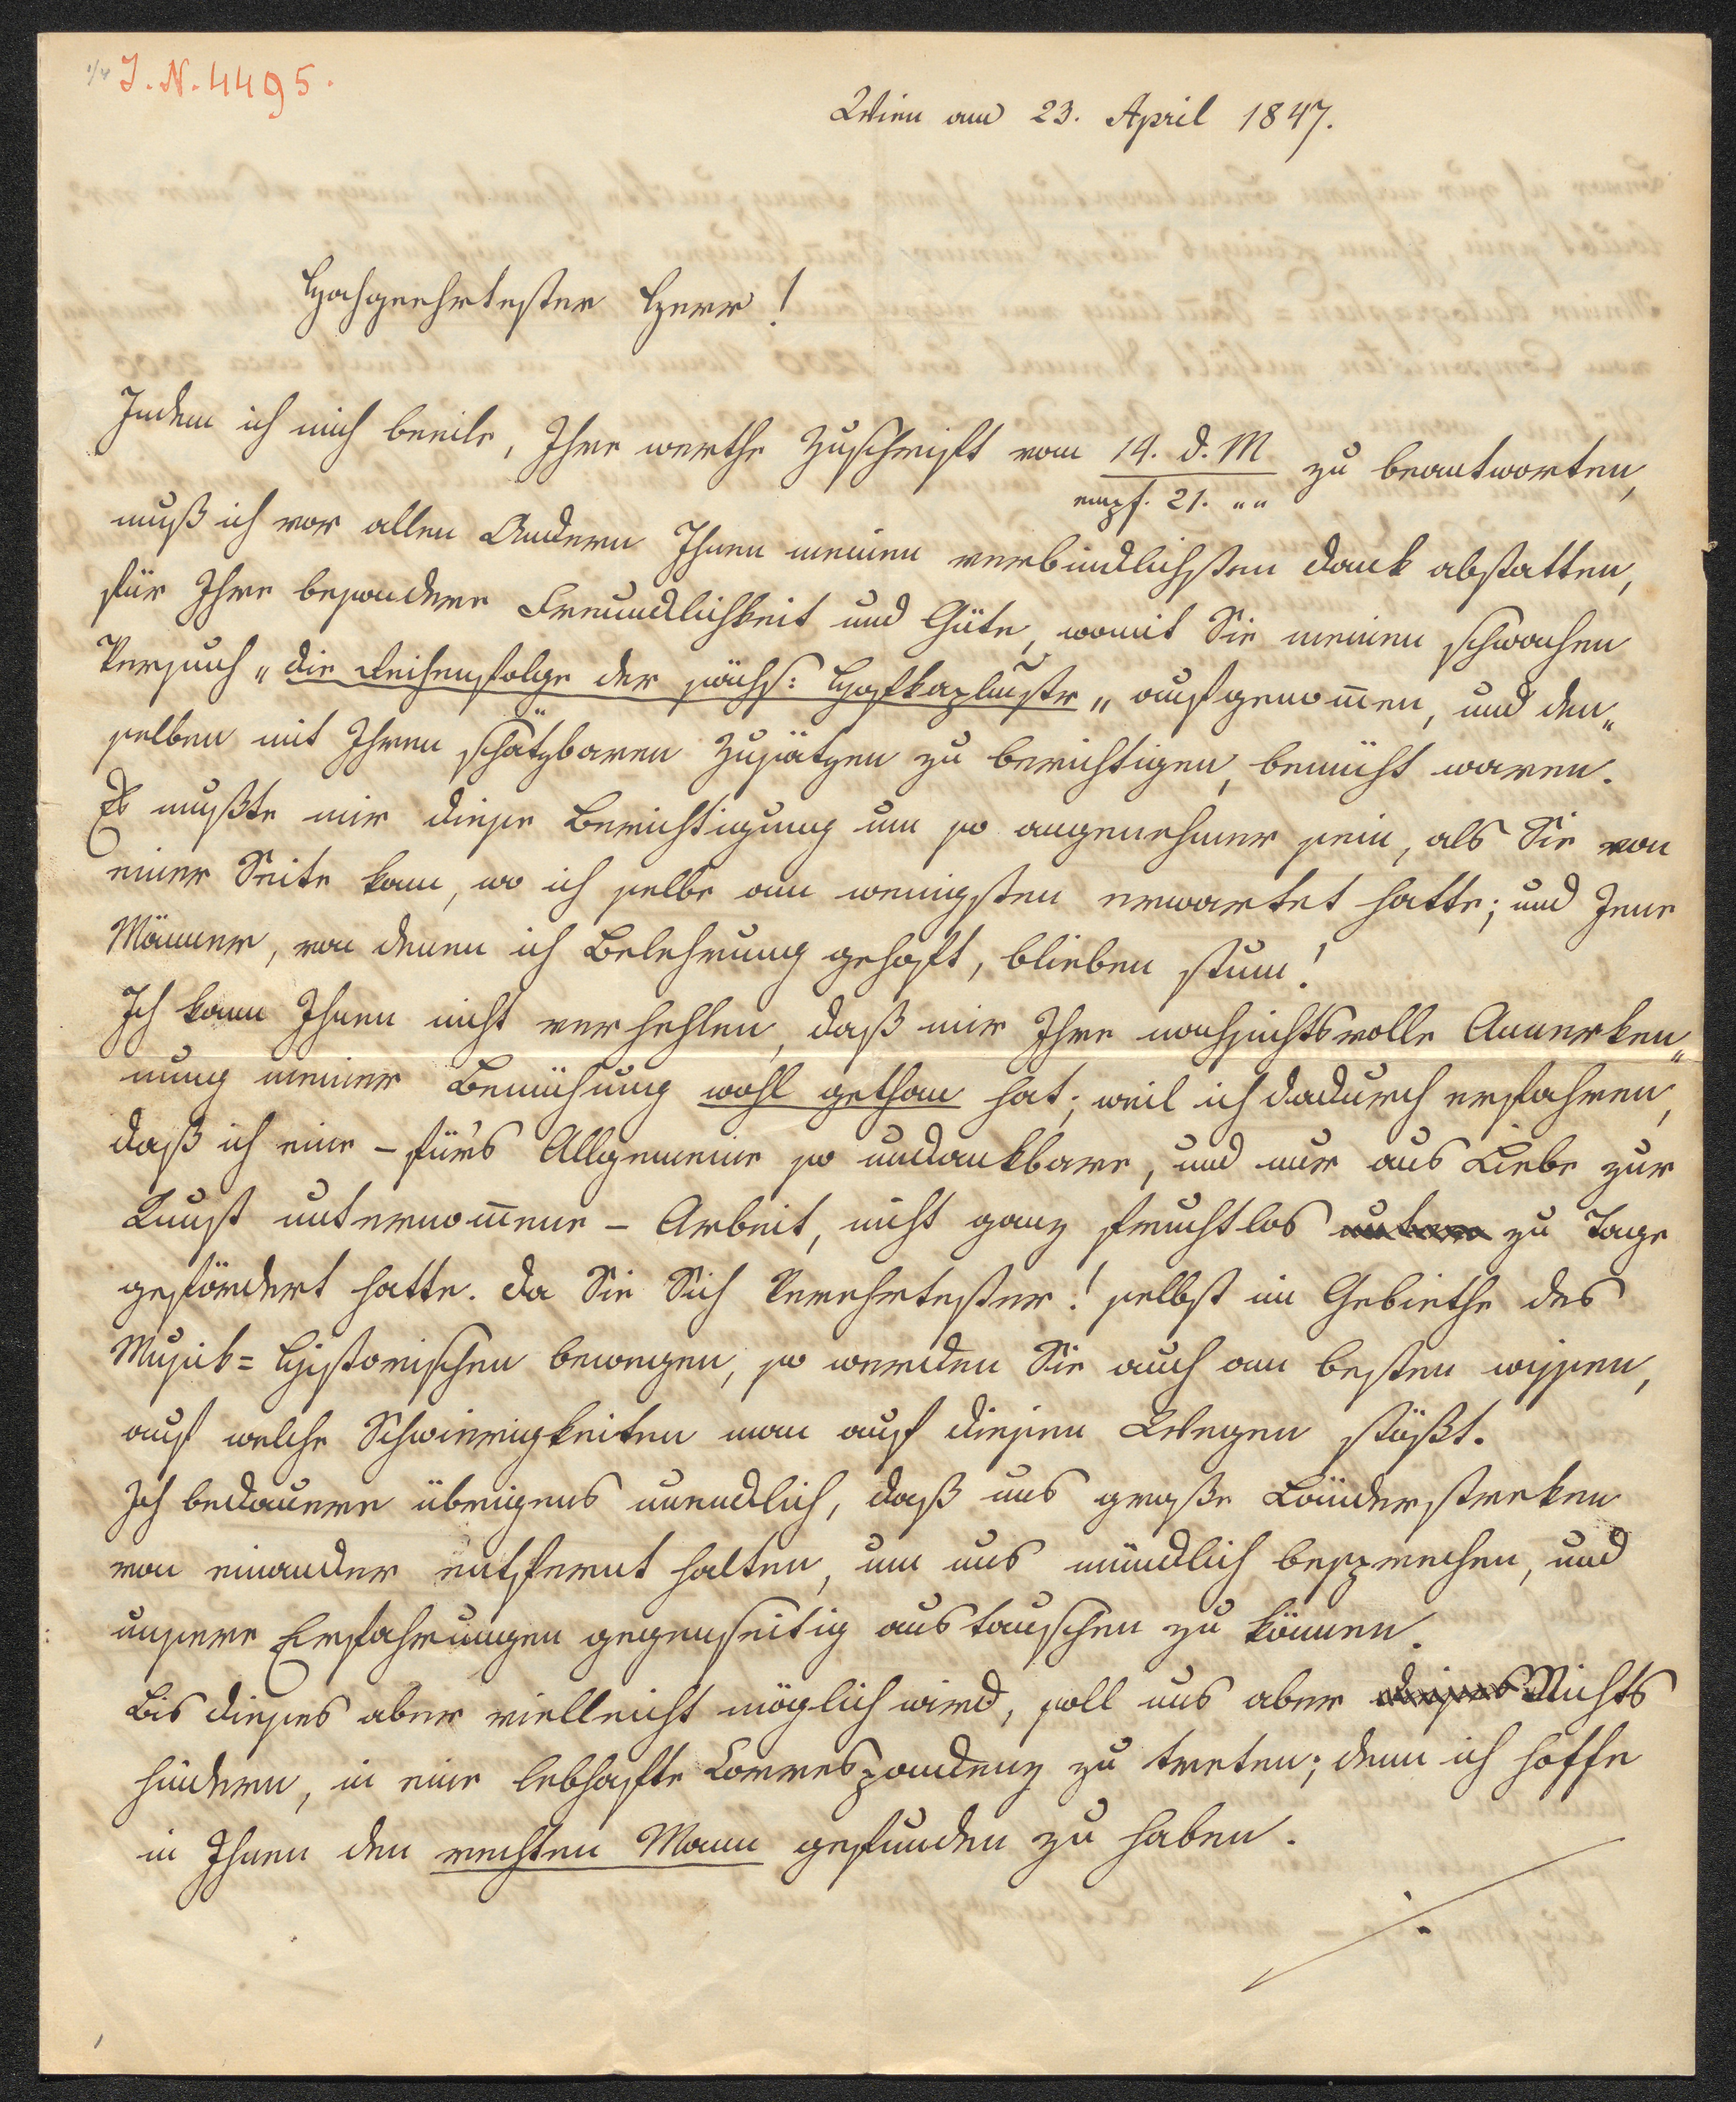 1/4 I. N. 4495.
Wien am 23. April 1847.
Hochgeehrtester Herr!
Indem ich mich beeile, Ihre werthe Zuschrift vom 14. d. M zu beantworten,
empf. 21. " "
muß ich vor allen Andern Ihnen meinen verbindlichsten Dank abstatten,
für Ihre besondere Freundlichkeit und Güte, womit Sie meinen schwachen
Versuch „die Reihenfolge der sächs: Hofkaplmstr" aufgenom̄en, und den„
selben mit Ihren schätzbaren Zusätzen zu berichtigen, bemüht waren.
Es mußte mir diese Berichtigung um so angenehmer sein, als Sie von
einer Seite kam, wo ich selbe am wenigsten erwartet hatte; und Jene
Männer, von denen ich Belehrung gehofft, blieben stum!
Ich kann Ihnen nicht verhehlen, daß mir Ihre nachsichtsvolle Annerken„
nung meiner Bemühung wohl gethan hat; weil ich dadurch erfahren,
daß ich eine – für's Allgemeine so undankbare, und nur aus Liebe zur
Kunst unternom̄ene – Arbeit, nicht ganz fruchtlos zu Tage
gefördert hatte. Da Sie Sich Verehrtester! selbst im Gebiethe des
Musik= Historischen bewegen, so werden Sie auch am besten wissen,
auf welche Schwierigkeiten man auf diesen Wegen stößt.
Ich bedauere übrigens unendlich, daß uns große Länderstreken
von einander entfernt halten, um uns mündlich besprechen, und
unsere Erfahrungen gegenseitig austauschen zu können.
Bis dieses aber vielleicht möglich wird, soll uns aber dieses Nichts
hindern, in eine lebhafte Correspondenz zu treten; denn ich hoffe
in Ihnen den rechten Mann gefunden zu haben.
./.